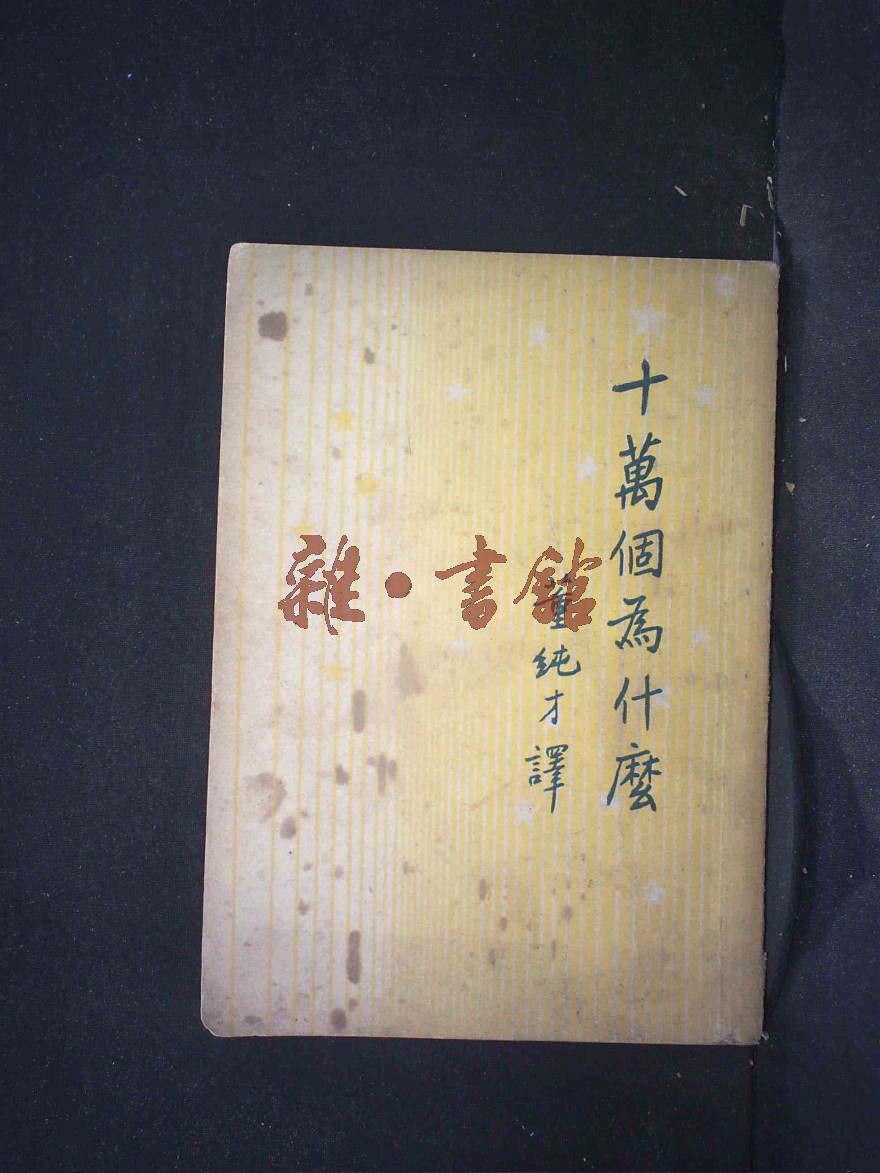 十萬個為什麼
董純才譯
雜·書館